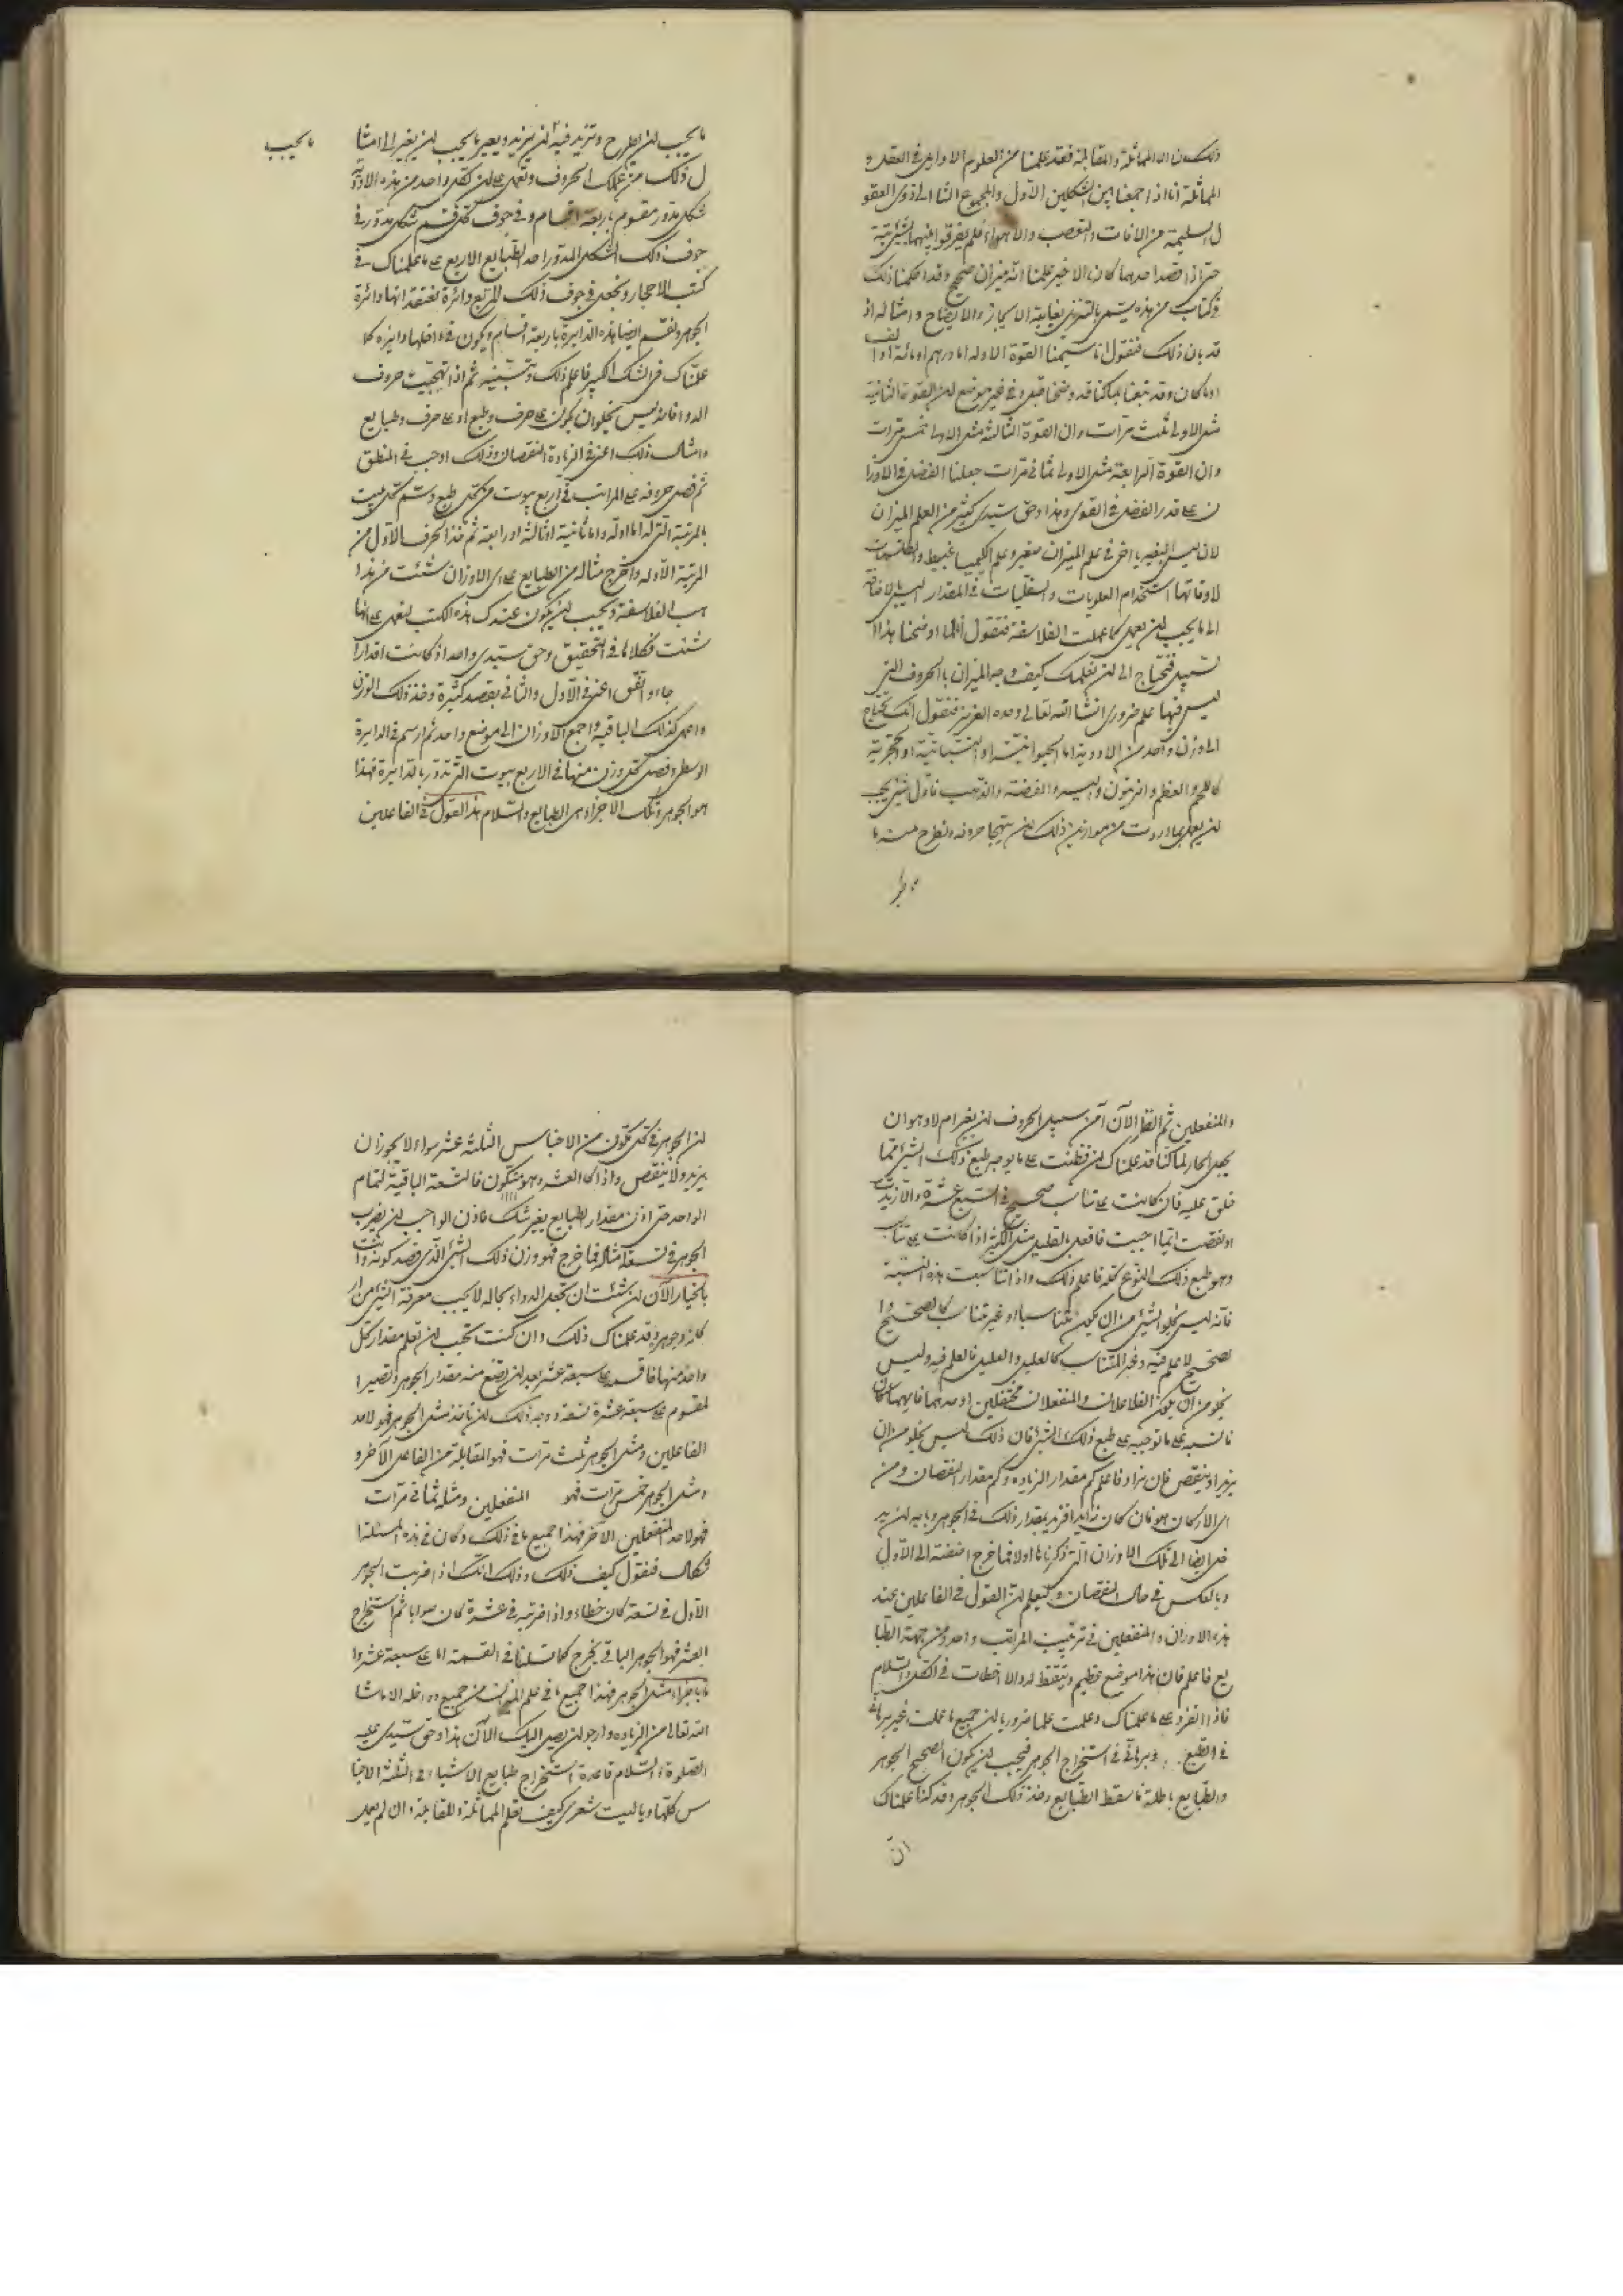 ذلك من المماثلة والمقابلة فقد علمنا من العلوم الاوايل في العقل و
المماثلة انا اذا جمعنا بين الشكلين الاول والمجموع الثاني ذوي العقو
ل السليمة من الافات والتعصب والاهواء فلم يفرقوا بينهما بشيء بتة
حتى اذا قصد احدهما كان الاخير علمنا انه ميزان صحيح وقد احكمنا ذلك
في كتاب من هذه يسمى بالتنزيل بغاية الايجاز والايضاح وامثاله اذ
قد بان ذلك فنقول انا سمينا القوة الاوله اما درهم او مائة او الف
او ما كان وقد تبعنا بما كنا قد وضحنا قبل وفي غير موضع ان القوة الثانية
مثل الاولى ثلث مرات وان القوة الثالثة مثل الاولى خمس مرات
وان القوة الرابعة مثل الاولى ثماني مرات جعلنا الفضل في الاوزا
ن على قدر الفضل في القوى وهذا وحق سيدي كثير من العلم الميزان
لان ليس
لاوقاتها استخدام العلويات والسفليات في المقدار
الى ما يجب ان يعمل كما عملت الفلاسفة فنقول انا لما اوضحنا هذا ا
لسبيل فنحتاج الى ان نعلمك كيف وجه الميزان بالحروف التي
ليس فيها علم ضروري انشا الله تعالى وحده العزيز فنقول انك تحتاج
الى وزن واحد من الادوية اما الحيوانية او النباتية او الحجرية
كاللحم والعظم والزيتون والفضة والذهب فاول شيء يجب
ان يعمل بما اردت من موازين ذلك ان يتهجا حروفه وتطرح منه ما
ما يجب ان يطرح وتزيد فيه ان يزيد ويعير ما يجب ان يغير الى امثا
ما يجب
ل ذلك من عملك الحروف وتعمل على ان كل واحد من هذه الادوية
شكل مدور مقسوم باربعة اقسام وفي جوف كل قسم شكل مدور في
جوف ذلك الشكل المدور احد الطبايع الاربع على ما علمناك في
كتب الاحجار وتجعل في جوف ذلك المربع دائرة تعتقد انها دائرة
الجوهر وتقسم ايضا هذه الدايرة باربعة اقسام ويكون في داخلها دايرة كما
علمناك في الشك الكبير فاعلم ذلك وتبينه ثم اذا تهجيت حروف
الدواء فانه ليس يخلو ان يكون على حرف وطبع او على حرف وطبايع
وامثال ذلك اعني في الزيادة النقصان وذلك اوجب في المنطق
ثم فصل حروفه على المراتب في اربع بيوت من كل طبع وسم كل بيت
بالمرتبة التي له اما اوله واما ثانية او ثالثة او رابعة ثم خذ الحرف الاول من
المرتبة الاوله واخرج مثاله من الطبايع على اي الاوزان شئت من مذا
هب الفلاسفة ويجب ان يكون عندك هذه الكتب لتعمل على ايها
شئت فكلاهما في التحقيق وحق سيدي واحد اذ كانت اقدارا
جاء واتفق اعني في الاول والثاني بقصد كثيرة وخذ ذلك الوزن
واعمل كذلك الباقيه واجمع الاوزان الى موضع واحد ثم ارسم في الدايرة
الوسطى وفصل كل وزن منها في الاربع بيوت التي تدور بالدايرة فهذا
هو الجوهر وتلك الاجزاء هي الطبايع والسلام هذا القول في الفاعلين
والمنفعلين ثم انظر الآن من سبيل الحروف ان يغير ام لا وهو ان
يجعل الحار لما كنا قد علمناك ان قطنت على ما يوجبه طبع ذلك الشيء مما
خلق عليه فان كانت على تناسب صحيح في السبع عشرة والا زيدت
او نقصت ايما احببت فافعل بالقليل مثل الكثير اذا كانت على تناسب
وهو طبع ذلك النوع كله فاعلم ذلك واذا تناسبت هذه النسبة
فانه ليس يخلو الشيء من ان يكون متناسبا او غير متناسب كالصحيح وا
لصحيح لا علم فيه وغير المتناسب كالعليل والعليل فالعلم فيه وليس
يخلو من ان يكون الفاعلان والمنفعلان مختلفين او احدهما فايهما كان
فانسبه على ما توجبه على طبع ذلك الشيء فان ذلك ليس يخلو من ان
يزيد او ينقص فان زاد فاعلم كم مقدار الزياده وكم مقدار النقصان ومن
اي الاركان هو فان كان زايدا فزيد بمقدار ذلك في الجوهر وبابه ان يد
خل ايضا الى تلك الاوزان التي ذكرناها اولا فما خرج اضفته الى الاول
وبالعكس في حال النقصان وليعلم ان القول في الفاعلين عند
هذه الاوزان والمنفعلين في ترتيب المراتب واحد ومن جهة الطبا
يع فاعلم فان هذا موضع عظيم وتيقظ له والا اخطات في الكل والسلام
فاذا انفرد على ما علمناك وعلمت علما ضروريا ان جميع ما عملت غير برهاني
في الطبع وبرهاني في استخراج الجوهر فيجب ان يكون الصحيح الجوهر
والطبايع باطلة فاسقط الطبايع وخذ ذلك الجوهر وقد كنا علمناك
ان
ان الجوهر في كل مكون من الاجناس الثلثة عشر سواء لا يجوز ان
يزيد ولا ينقص واذا كا العشر وهو متكون فالتسعة الباقية لتمام
الواحد هي اذن مقدار الطبايع بغير شك فاذن الواجب ان يضرب
الجوهر في تسعة امثاله فما خرج فهو وزن ذلك الشيء الذي قصد كونه وانت
بالخيار الآن ان شئت ان تجعل الدواء بحاله لا يجب معرفة الشيء من ار
كانه وجوهره وقد علمناك ذلك وان كنت تحب ان تعلم مقدار كل
واحد منها فاقسمه على سبعة عشر بعد ان تضع منه مقدار الجوهر وتصير ا
لمقسوم على سبعة عشرة تسعة ووجه ذلك ان تاخذ مثل الجوهر فهو لاحد
الفاعلين ومثل الجوهر ثلث مرات فهو المقابلة من الفاعل الآخر و
ومثل الجوهر خمس مرات فهو المنفعلين ومثله ثماني مرات
فهو لاحد المنفعلين الآخر فهذا جميع ما في ذلك وكان في هذه المسئلة ا
شكال فنقول كيف ذلك وذلك انك اذا ضربت الجوهر
الاول في تسعة كان خطاء واذا ضربته في عشرة كان صوابا ثم استخرج
العشر فهو الجوهر الباقي يخرج كما قلنا في القسمة اما على سبعة عشر وا
ما باجزاء مثل الجوهر فهذا جميع ما في علم الميزان من جميع دواخله الا ما شا
الله تعالى من الزياده وارجو ان يصل اليك الآن هذا وحق سيدي عليه
الصلوة والسلام قاعدة استخراج طبايع الاشياء في الثلثة الاجنا
س كلها ويا ليت شعري كيف تعلم المماثلة والمقابلة وان لم يعمل